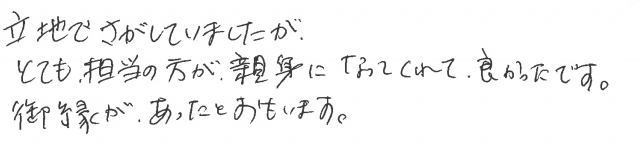 立地でさがしていましたが、
とても、担当の方が、親身になってくれて、良かったです。
御縁が、あったとおもいます。